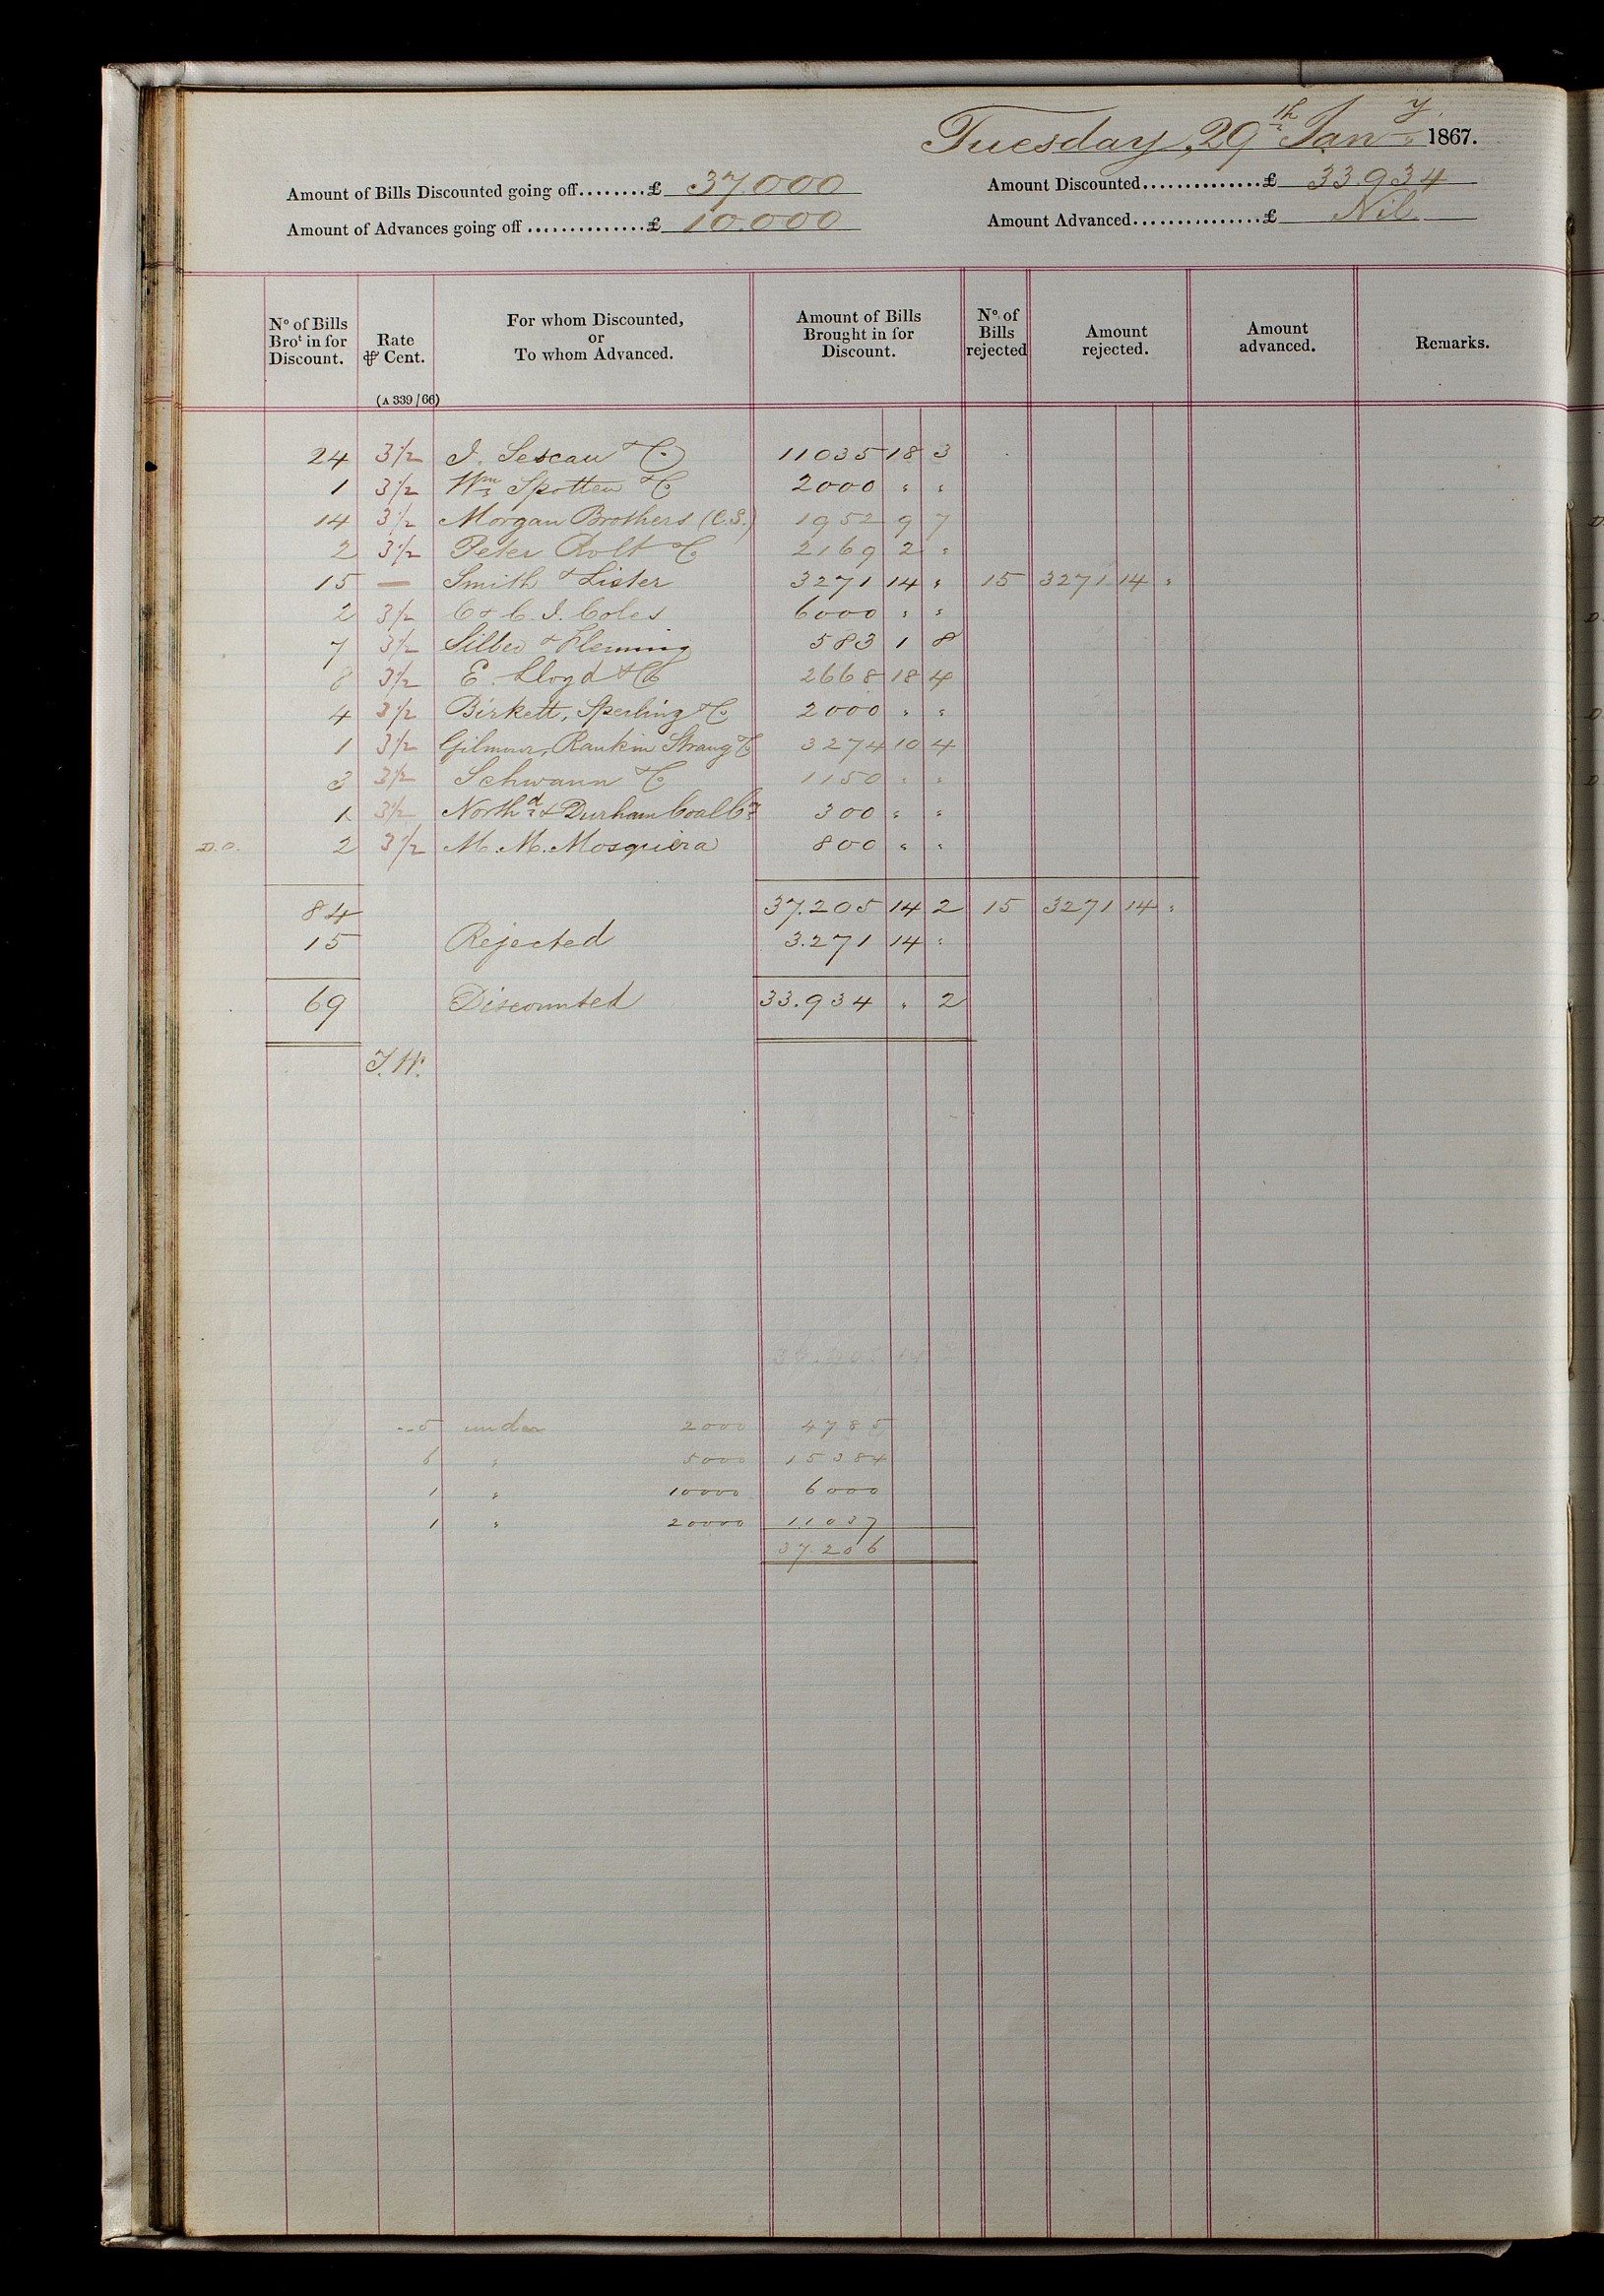 Tuesday, 29th Jany. 1867.
Amount of Bills Discounted going off........£ 37.000
Amount Discounted..............£ 33.934
Amount of Advances going off ..............£ 10.000
Amount Advanced...............£ Nil
No of Bills Brot in for Discount.
Rate ⅌ Cent.
For whom Discounted, or To whom Advanced.
Amount of Bills Brought in for Discount.
No. of Bills rejected
Amount rejected.
Amount advanced.
Remarks.
(A 339/66)
24 3½ I. Lescau & Co 11035 18 3
1 3½ Wm Spotten & Co 2000 " "
14 3½ Morgan Brothers (C.S.) 1952 9 7
2 3½ Peter Rolt & Co 2169 2 "
15 — Smith & Lister 3271 14 " 15 3271 14 "
2 3½ C & C. I. Coles 6000 " "
7 3½ Silber & Fleming 583 1 8
8 3½ E. Lloyd & Co 2668 18 4
4 3½ Birkett, Sperling & Co 2000 " "
1 3½ Gilmour, Rankin Strang & Co 3274 10 4
3 3½ Schwann & Co 1150 " "
1 3½ Northd & Durham Coal Co 300 " "
D.O. 2 3½ M. M. Mosquiera 800 " "
84 37.205 14 2 15 3271 14 "
15 Rejected 3.271 14 "
69 Discounted 33.934 " 2
J.W.
5 under 2000 4785
6 " 5000 15384
1 " 10000 6000
1 " 20000 11037
37.206